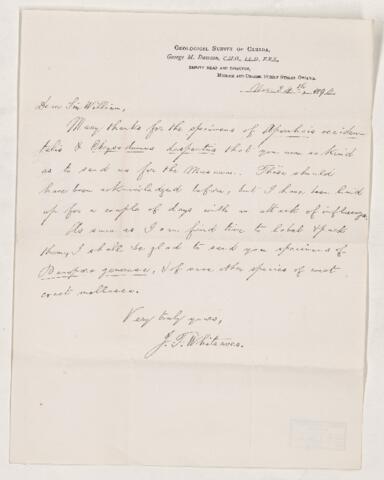 GEOLOGICAL SURVEY OF CANADA,
George M. Dawson, C.M.G., LL.D., F.R.S.,
DEPUTY HEAD AND DIRECTOR,
Dear Sir William,
Many thanks for the specimens of Aporrhais occiden-
talis & Chrysodomus despectus that you were so kind
as to send us for the Museum. These should
have been acknowledged before, but I have been laid
up for a couple of days with an attack of influenza.
As soon as I can find time to label & pack
them, I shall be glad to send you specimens of
& of some other species of west
coast mollusca.
Very truly yours,
J. F. Whiteaves.